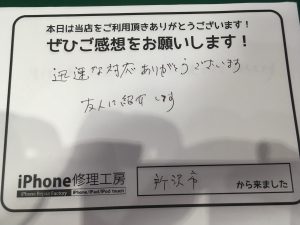 本日は当店をご利用頂きありがとうございます！
ぜひご感想をお願いします！
迅速な対応ありがとうございます
友人に紹介します
iPhone修理工房
iPhone Repair Factory
iPhone/iPad/iPod touch
所沢市
から来ました